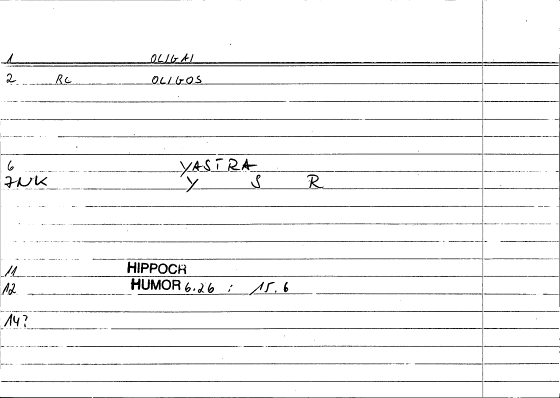 1 OLIGAI
2 RC OLIGOS
6 YASTRA
7NK Y S R
11 HIPPOCR
12 HUMOR 6.26 : 15.6
14?